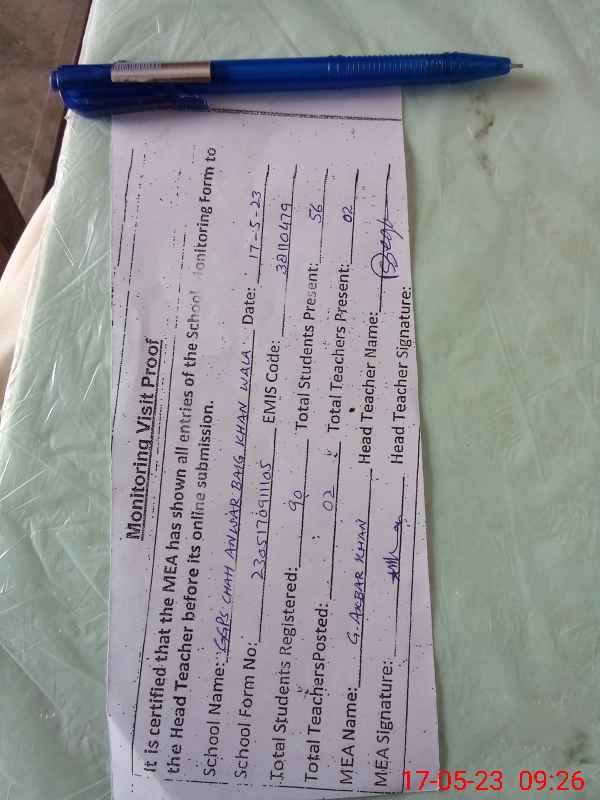 Monitoring Visit Proof
It is certified that the MEA has shown all entries of the School Monitoring Form to
the Head Teacher before its online submission.
School Name: GGPS CHAH ANWAR BAIG KHAN WALA Date: 17-5-23
School Form No: 2305170911105 EMIS Code: 38110479
Total Students Registered: 90 Total Students Present: 56
Total TeachersPosted: 02 Total Teachers Present: 02
MEA Name: G. AKBAR KHAN Head Teacher Name:
MEA Signature: Head Teacher Signature:
17-05-23 09:26